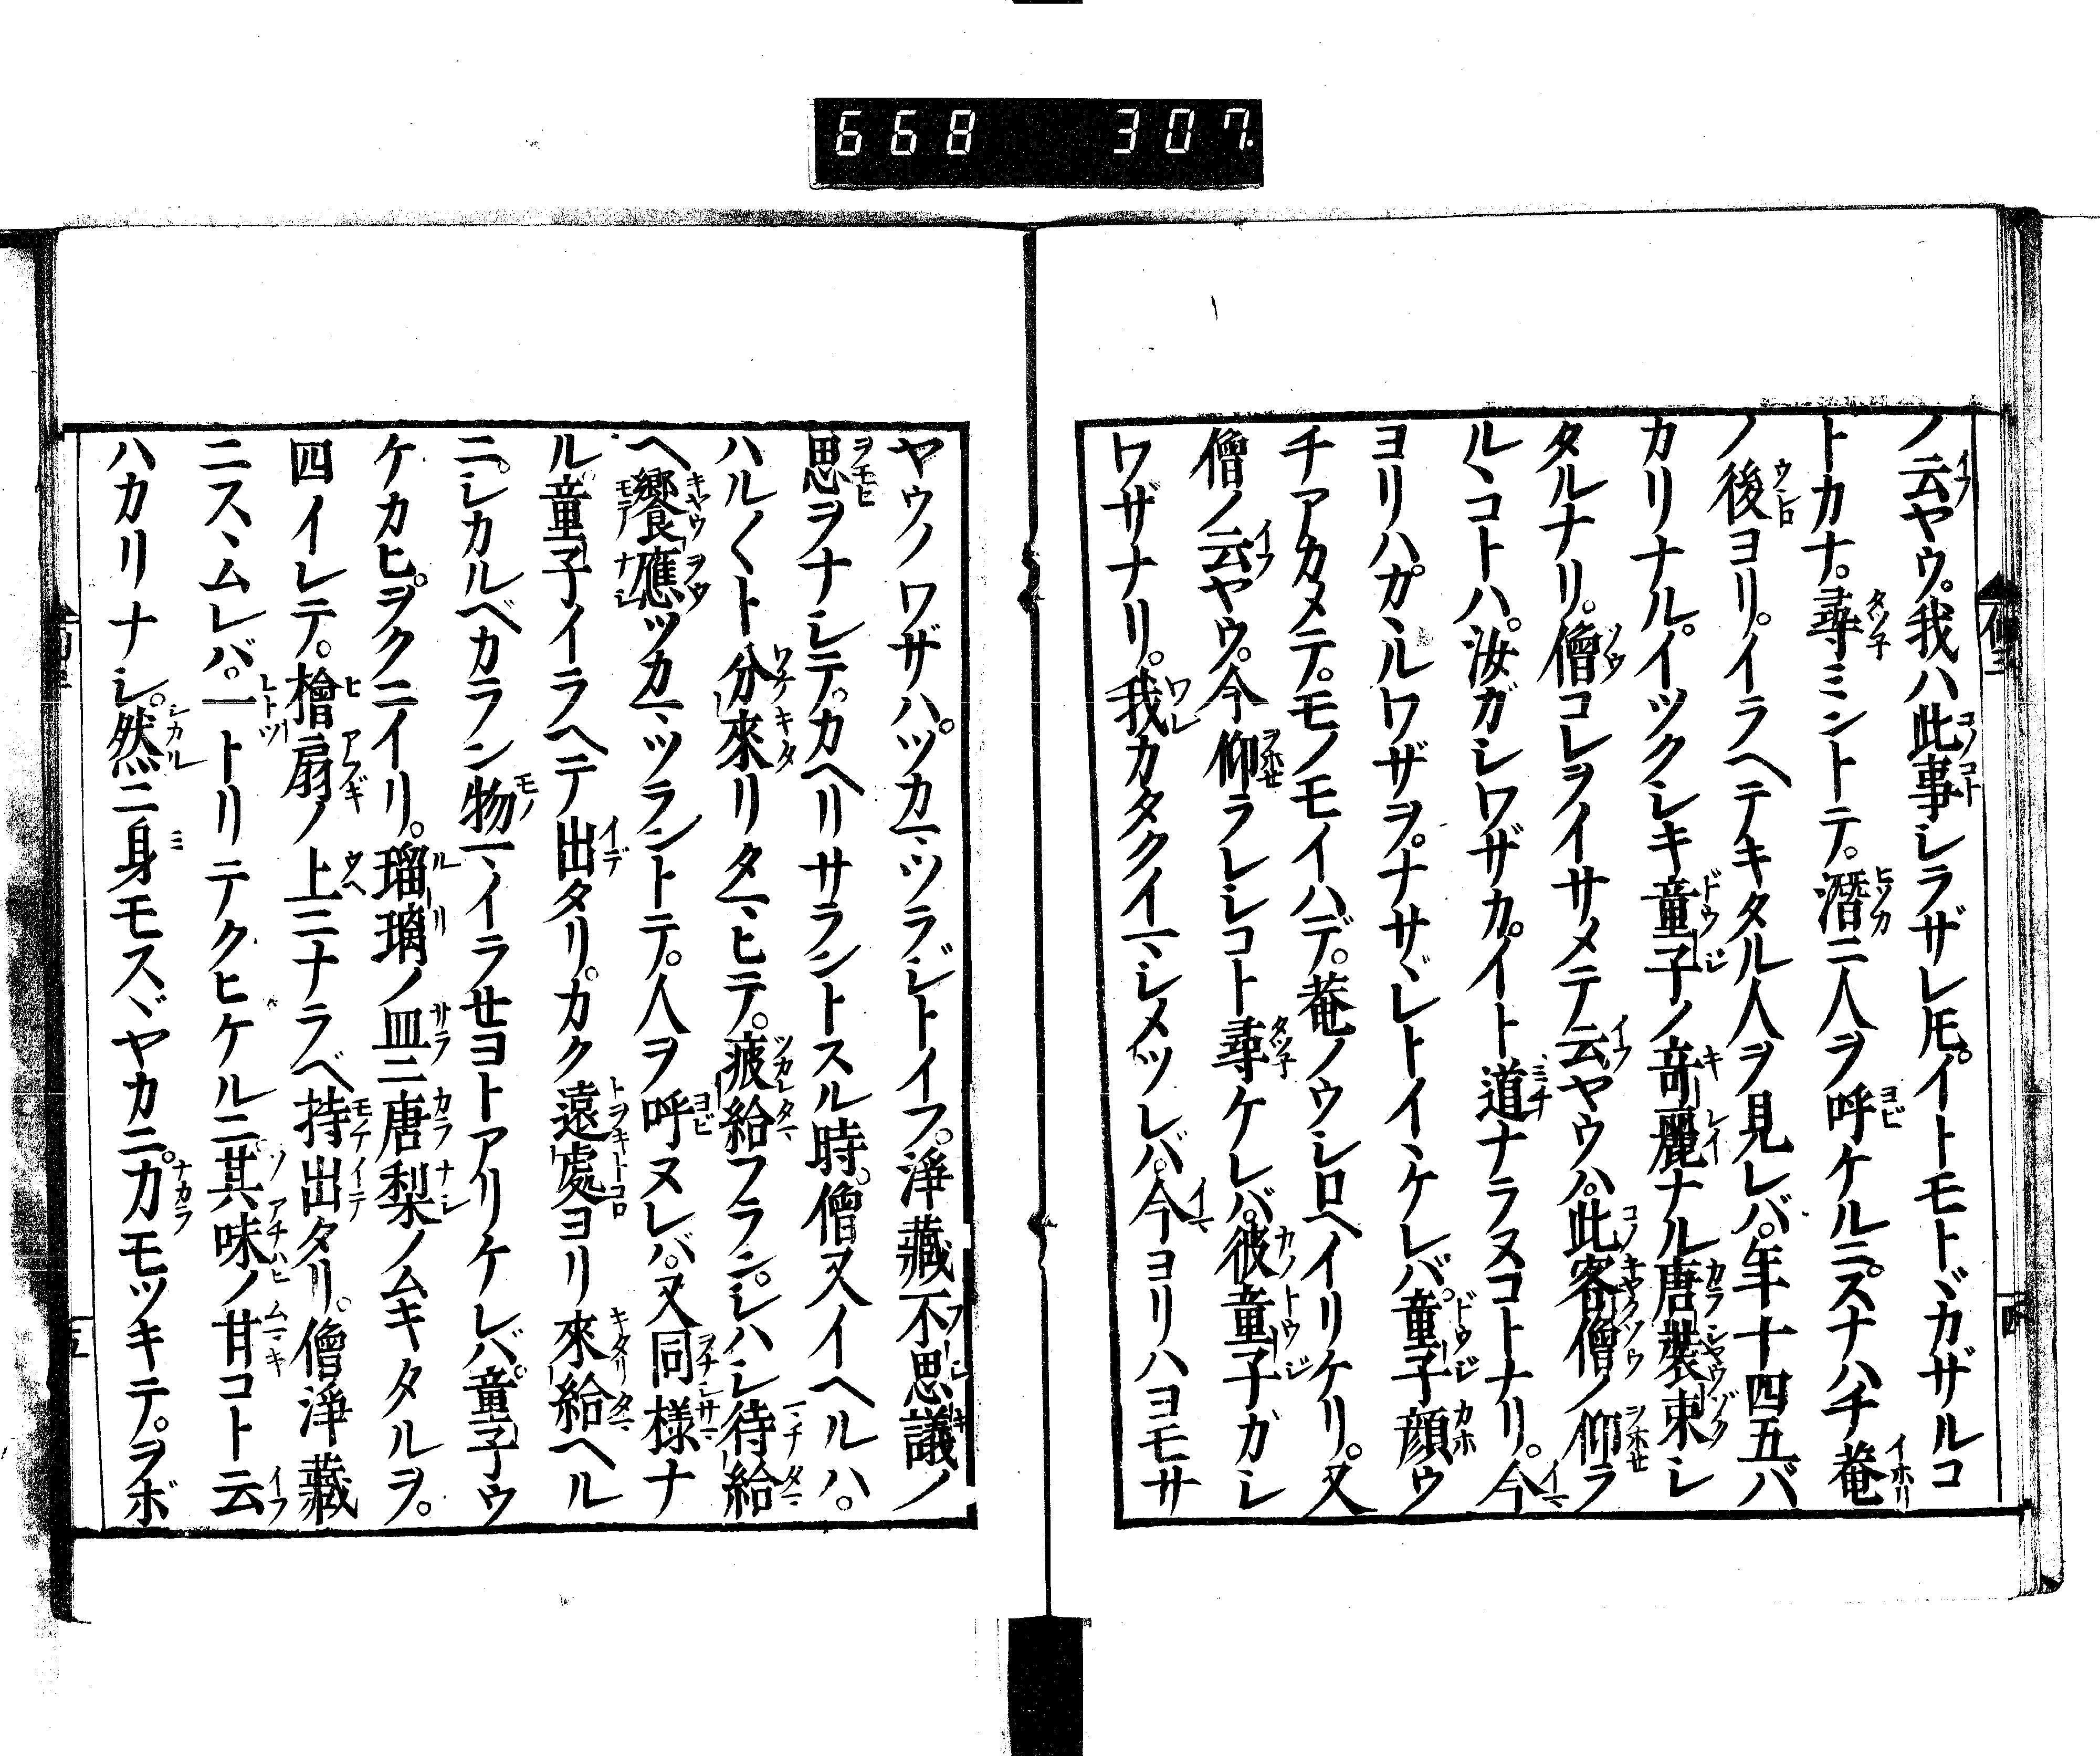 668 307
ノ云ヤウ。我ハ此事シラザレ𪜈。イトモトヾカザルコ
トカナ。尋ミントテ。潛ニ人ヲ呼ケルニ。スナハチ菴
ノ後ヨリ。イラヘテキタル人ヲ見レバ。年十四五バ
カリナル。イツクシキ童子ノ竒麗ナル唐裝束シ
タルナリ。僧コレヲイサメテ云ヤウハ。此客僧ノ仰ラ
ルヽコトハ。汝ガシワザカ。イト道ナラヌコトナリ。今
ヨリハ。カヽルワザヲ。ナサヾレトイヽケレバ。童子顔ウ
チアカメテ。モノモイハデ。菴ノウシロヘイリケリ。又
僧ノ云ヤウ。今仰ラレシコト尋ケレバ。彼童子カシ
ワザナリ。我カタクイマシメツレバ。今ヨリハヨモサ
ヤウノワザハ。ツカマツラジトイフ。淨藏不思議ノ
思ヲナシテ。カヘリサラントスル時。僧又イヘルハ。
ハル〱ト分來リタマヒテ。疲給フラン。シハシ待給
ヘ饗應ツカマツラントテ。人ヲ呼ヌレバ。又同樣ナ
ル童子イラヘテ出タリ。カク遠處ヨリ來給ヘル
ニ。シカルベカラン物マイラセヨトアリケレバ。童子ウ
ケカヒ。ヲクニイリ。瑠璃ノ皿ニ唐梨ノムキタルヲ。
四イレテ。檜扇ノ上ニナラベ持出タリ。僧淨藏
ニスヽムレバ。一トリテクヒケルニ。其味ノ甘コト云
ハカリナシ。然ニ身モスヾヤカニ。力モツキテ。ヲボ